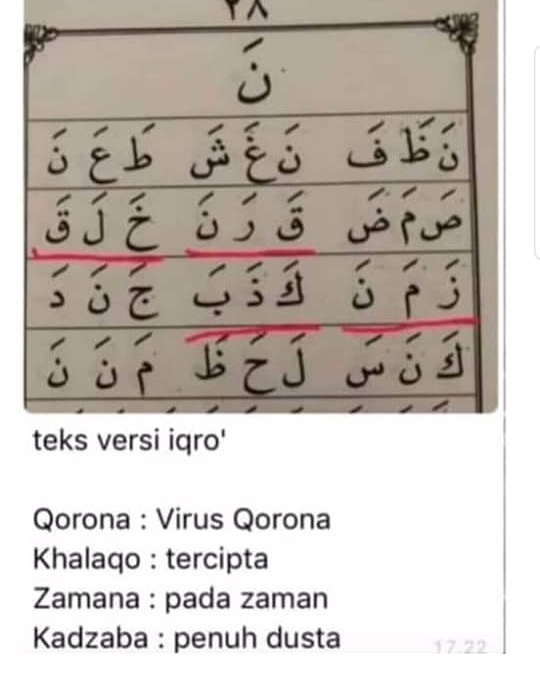 ٢٨
نَ
نَ ظَ فَ نَ غَ شَ طَ عَ نَ
صَ مَ ضَ قَ رَ نَ خَ لَ قَ
زَ مَ نَ كَ ذَ بَ جَ نَ دَ
كَ نَ سَ لَ حَ ظَ مَ نَ نَ
teks versi iqro'
Qorona : Virus Qorona
Khalaqo : tercipta
Zamana : pada zaman
Kadzaba : penuh dusta
17.22